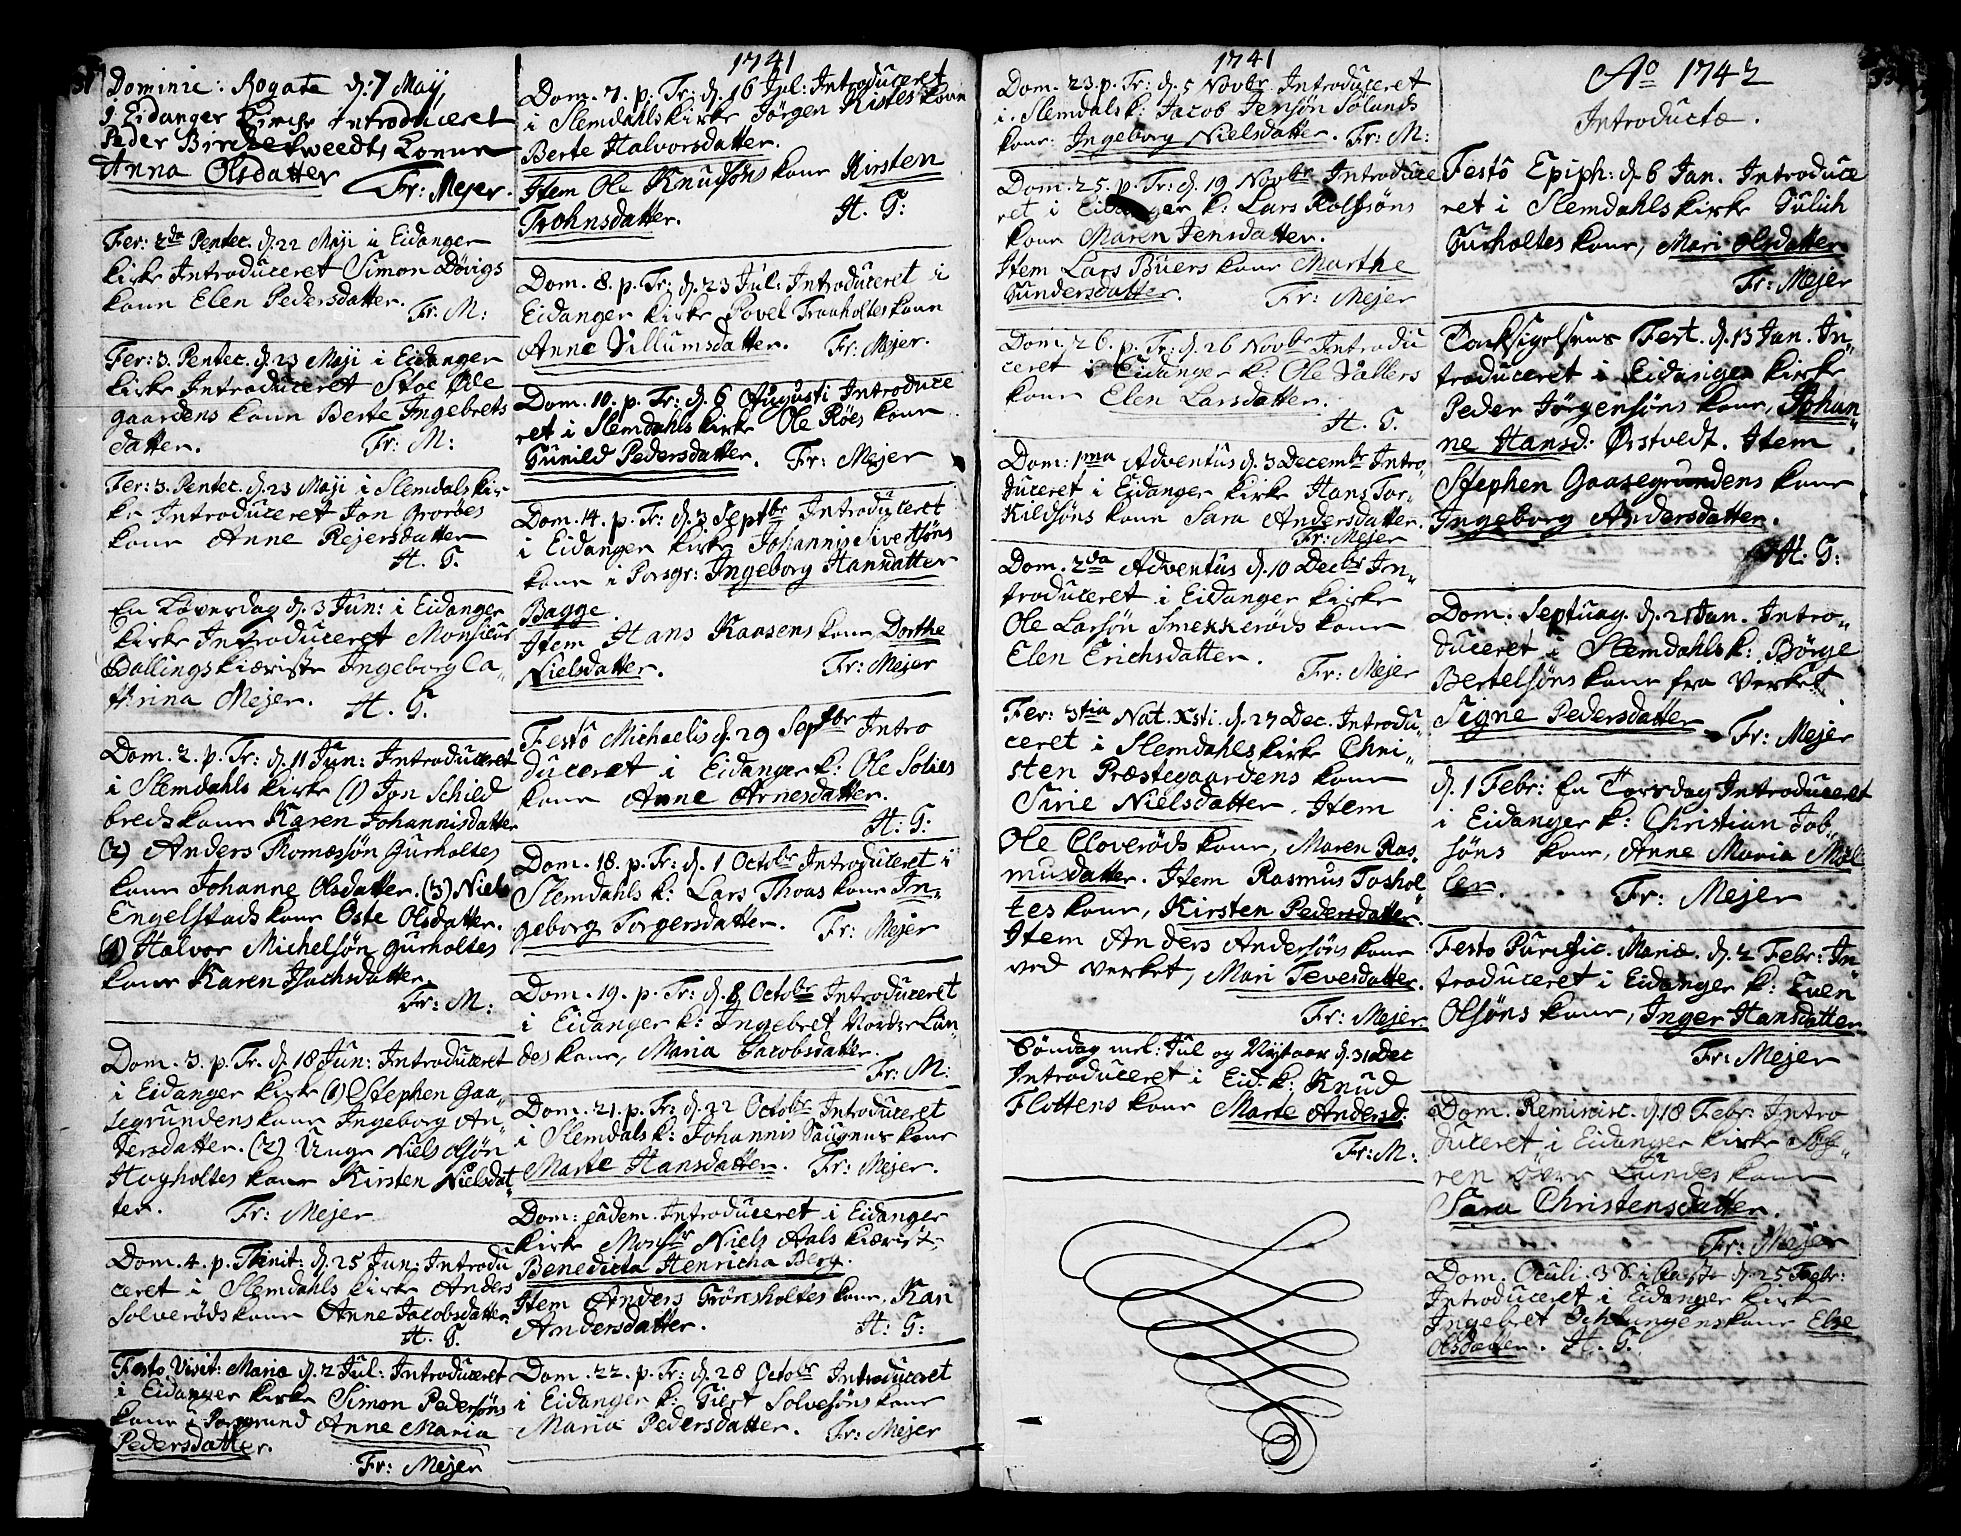 Dominic: Rogate d: 7 Maij,
i Eidanger Kirche introduceret
Peder Birche Tweedts Konne
Anna Olsdatter
Fr: Mejer.
Fer: 2da Pentec. d. 22 Maji i Eidanger
kirke Introduceret Simon Døvigs
kone Elen Pedersdatter.
Fr: M:
Fer: 3. Pentec. d. 23 Maji i Eidanger
kirke Introduceret Stoe Øde
gaardens kone Berte Ingebrets
datter. Fr: M:
Fer: 3. Pentec. d. 23 Maji i Slemdals kir
ke Introduceret Jon Grorbes
kone Anne Rejersdatter
H. G.
En Løverdag d. 3 Jun: i Eidanger
kirke Introduceret Monsieur
Ballings kiæriste Ingeborg Ca
thrina Mejer. H. G.
Dom. 2. p. Tr: d. 11 Jun: Introduceret
i Slemdahls kirke (1) Jon Schild
breds kone Karen Johannisdatter
(2) Anders Thomæsøn Gurholtes
kone Johanne Olsdatter. (3) Niels
Engelstads kone Oste Olsdatter.
(4) Halvor Michelsøn Gurholtes
kone Karen Isachsdatter.
Fr: M:
Dom. 3. p. Tr. d. 18 Jun: Introduceret
i Eidanger kirke (1) Stephen Gaa,,
segrundens kone Ingeborg An,,
dersdatter. (2) Unge Niels Olsøn
Hogholtes kone Kirsten Nielsdat,,
ter. Fr: Mejer
Dom. 4. p. Trinit: d. 25 Jun: Introdu
ceret i Slemdahls kirke Anders
Solverøds kone Anne Jacobsdatter
H. G.
Festo Visit: Mariæ d. 2 Jul: Introduceret
i Eidanger kirke Simon Pedersøns
kone i Porsgrund Anne Maria
Pedersdatter.
Fr: Mejer
1741
Dom. 7. p. Tr: d. 16 Jul: Introduceret
i Slemdahls kirke Jørgen Ristes kone
Berte Halvorsdatter.
Item Ole Knudsøns kone Kirsten
Trohnsdatter. H. G:
Dom. 8. p. Tr: d. 23 Jul: Introduceret i
Eidanger kirke Povel Traaholtes kone
Anne Villumsdatter. Fr: Mejer.
Dom. 10. p. Tr: d. 6 Augusti Introduce
ret i Slemdahls kirke Ole Røes kone
Gunild Pedersdatter. Fr: Mejer
Dom. 14. p. Tr: d. 3 Septbr Introduceret
i Eidanger kirke Johanny Sivertsøns
kone i Porsgr: Ingeborg Hansdatter
Bagge.
Item Hans Kaasens kone Dorthe
Nielsdatter. Fr: Mejer
Festo Michaelis d. 29 Septbr Intro
duceret i Eidanger k: Ole Solies
kone Anne Arnesdatter.
H. G:
Dom. 18. p. Tr: d. 1 Octobr Introduceret i
Slemdahls k: Lars Thoas kone In,,
geborg Torgersdatter. Fr: Mejer
Dom. 19. p. Tr: d. 8 Octobr Introduceret
i Eidanger k: Ingebret Nordre Lun,,
des kone, Maria Jacobsdatter.
Fr: M:
Dom. 21. p. Tr: d. 22 Octobr Introduceret
i Slemdals k: Johannis Saugnes kone
Marte Hansdatter. Fr: Mejer.
Dom: eâdem. Introduceret i Eidanger
kirke Monsr Niels Aals kiæriste
Benedicta Henricha Berg.
Item Anders Grönsholtes kone, Kari
Andersdatter. H. G:
Dom. 22. p. Tr: d. 28 Octobr Introduceret
i Eidanger k: Giert Solvesøns kone
Maria Pedersdatter. Fr: Mejer
1741
Dom. 23. p. Tr: d. 5 Novbr Introduceret
i Slemdals k: Jacob Jensøn Sølands
kone: Ingeborg Nielsdatter. Fr: M:
Dom. 25. p. Tr: d. 19 Novbr Introduce
ret i Eidanger k: Lars Rolfsøns
kone Maren Jensdatter.
Item Lars Buers kone Marthe
Gundersdatter. Fr: Mejer
Dom. 26. p. Tr: d. 26 Novbr Introdu
ceret i Eidanger k: Ole Vallers
kone Elen Larsdatter.
H. G.
Dom: 1ma Adventus d. 3 Decembr Intro,,
duceret i Eidanger kirke Hans Tor,,
kildsøns kone Sara Andersdatter.
Fr: Mejer
Dom. 2da Adventus d. 10 Decbr In,,
troduceret i Eidanger kirke
Ole Larsøn Smekkerøds kone
Elen Erichsdatter.
Fr: Mejer
Fer: 3tia Nat. Xsti. d. 27 Dec. Introdu,,
ceret i Slemdahls kirke Chri,,
sten Præstegaardens kone
Sirie Nielsdatter. Item
Ole Cloverøds kone, Maren Ras,,
musdatter. Item Rasmus Toshol
tes kone, Kirsten Pedersdatter.
Item Anders Andersøns kone
ved verket, Mari Tevesdatter.
Fr: Mejer
Söndag mel: Jul og Nytaar d. 31 Dec
Introduceret i Eid. k: Knud
Flottens kone Marte Andersd.
Fr: M:
Ao 1742
Introductæ.
Festô Epiph: d. 6 Jan. Introduce
ret i Slemdahls kirke Gulich
Gurholtes kone, Mari Olsdatter
Fr: Mejer
Taksigelsens Fest. d. 13 Jan. In,,
troduceret i Eidanger kirke
Peder Jørgensøns kone, Johan,,
ne Hansd: Ørstvedt. Item
Stephen Gaasegrundens kone
Ingeborg Andersdatter.
H. G:
Dom. Septuag. d. 21 Jan. Intro,,
duceret i Slemdahls k: Børge
Bertelsøns kone fra verket
Signe Pedersdatter
Fr: Mejer
d. 1 Febr: En Torsdag Introduceret
i Eidanger k: Christian Job,,
søns kone, Anne Maria Møl
ler. Fr: Mejer
Festo Purific. Mariæ. d. 2 Febr: In,,
troduceret i Eidanger k: Even
Olsøns kone, Inger Hansdatter
Fr: Mejer
Dom. Reminisc. d. 18 Febr: Intro
duceret i Eidanger kirke Sø,,
ren Øvre Lundes kone
Sara Christensdatter.
Fr: Mejer
Dom. Oculi. 3 S. i Faste d. 25 Febr:
Introduceret i Eidanger kirke
Ingebret Ochlungens kone Else
Olsdatter. H. G.